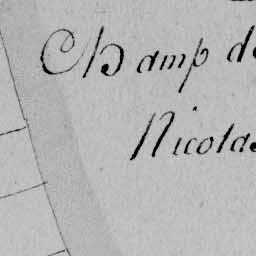 Champ de
Nicolas